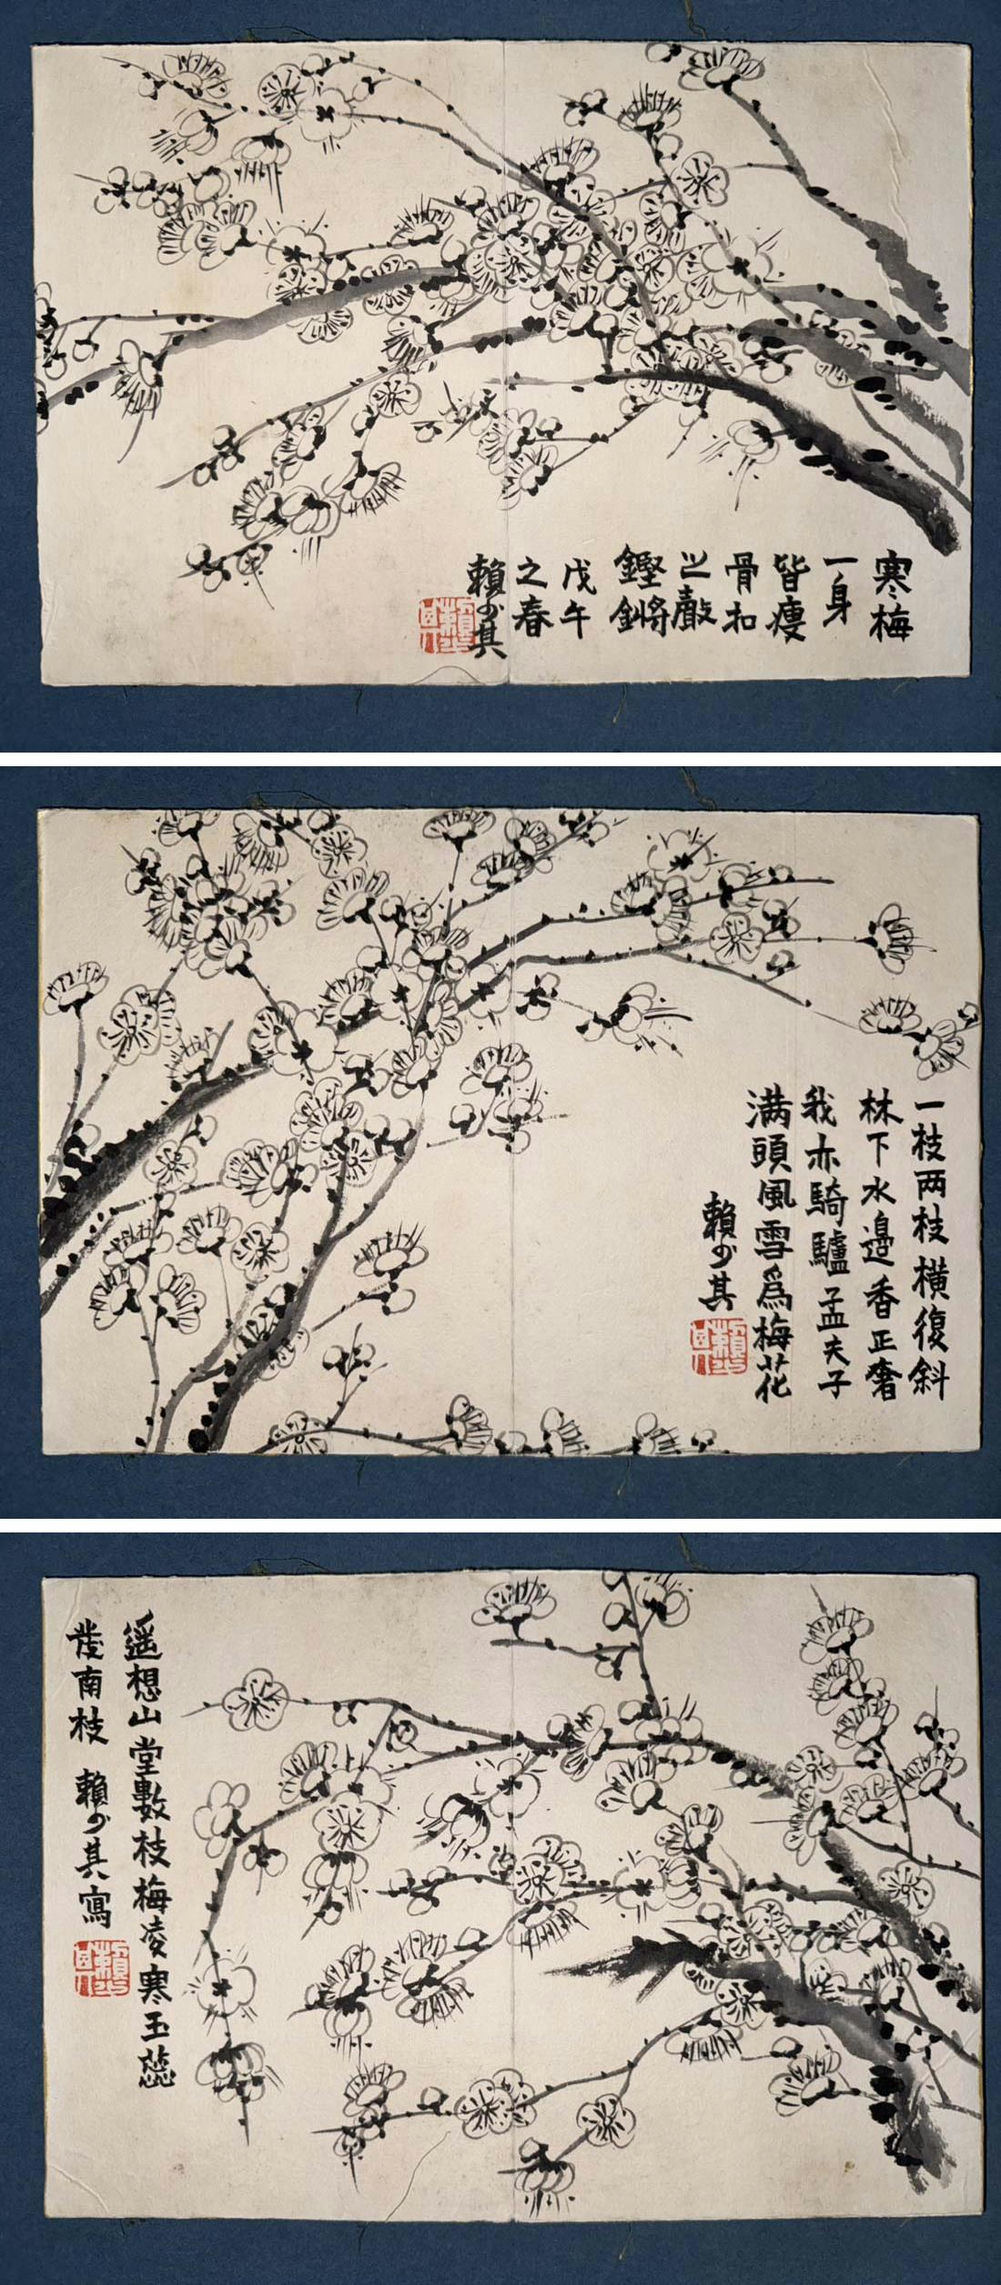 寒梅
一身
皆瘦
骨扣
之聲
鏗鏘
戊午
之春
賴少其
賴少其
一枝两枝橫復斜
林下水邊香正奢
我亦騎驢孟夫子
满頭風雪爲梅花
賴少其
賴少其
遥想山堂數枝梅凌寒玉蕊
發南枝
賴少其寫
賴少其